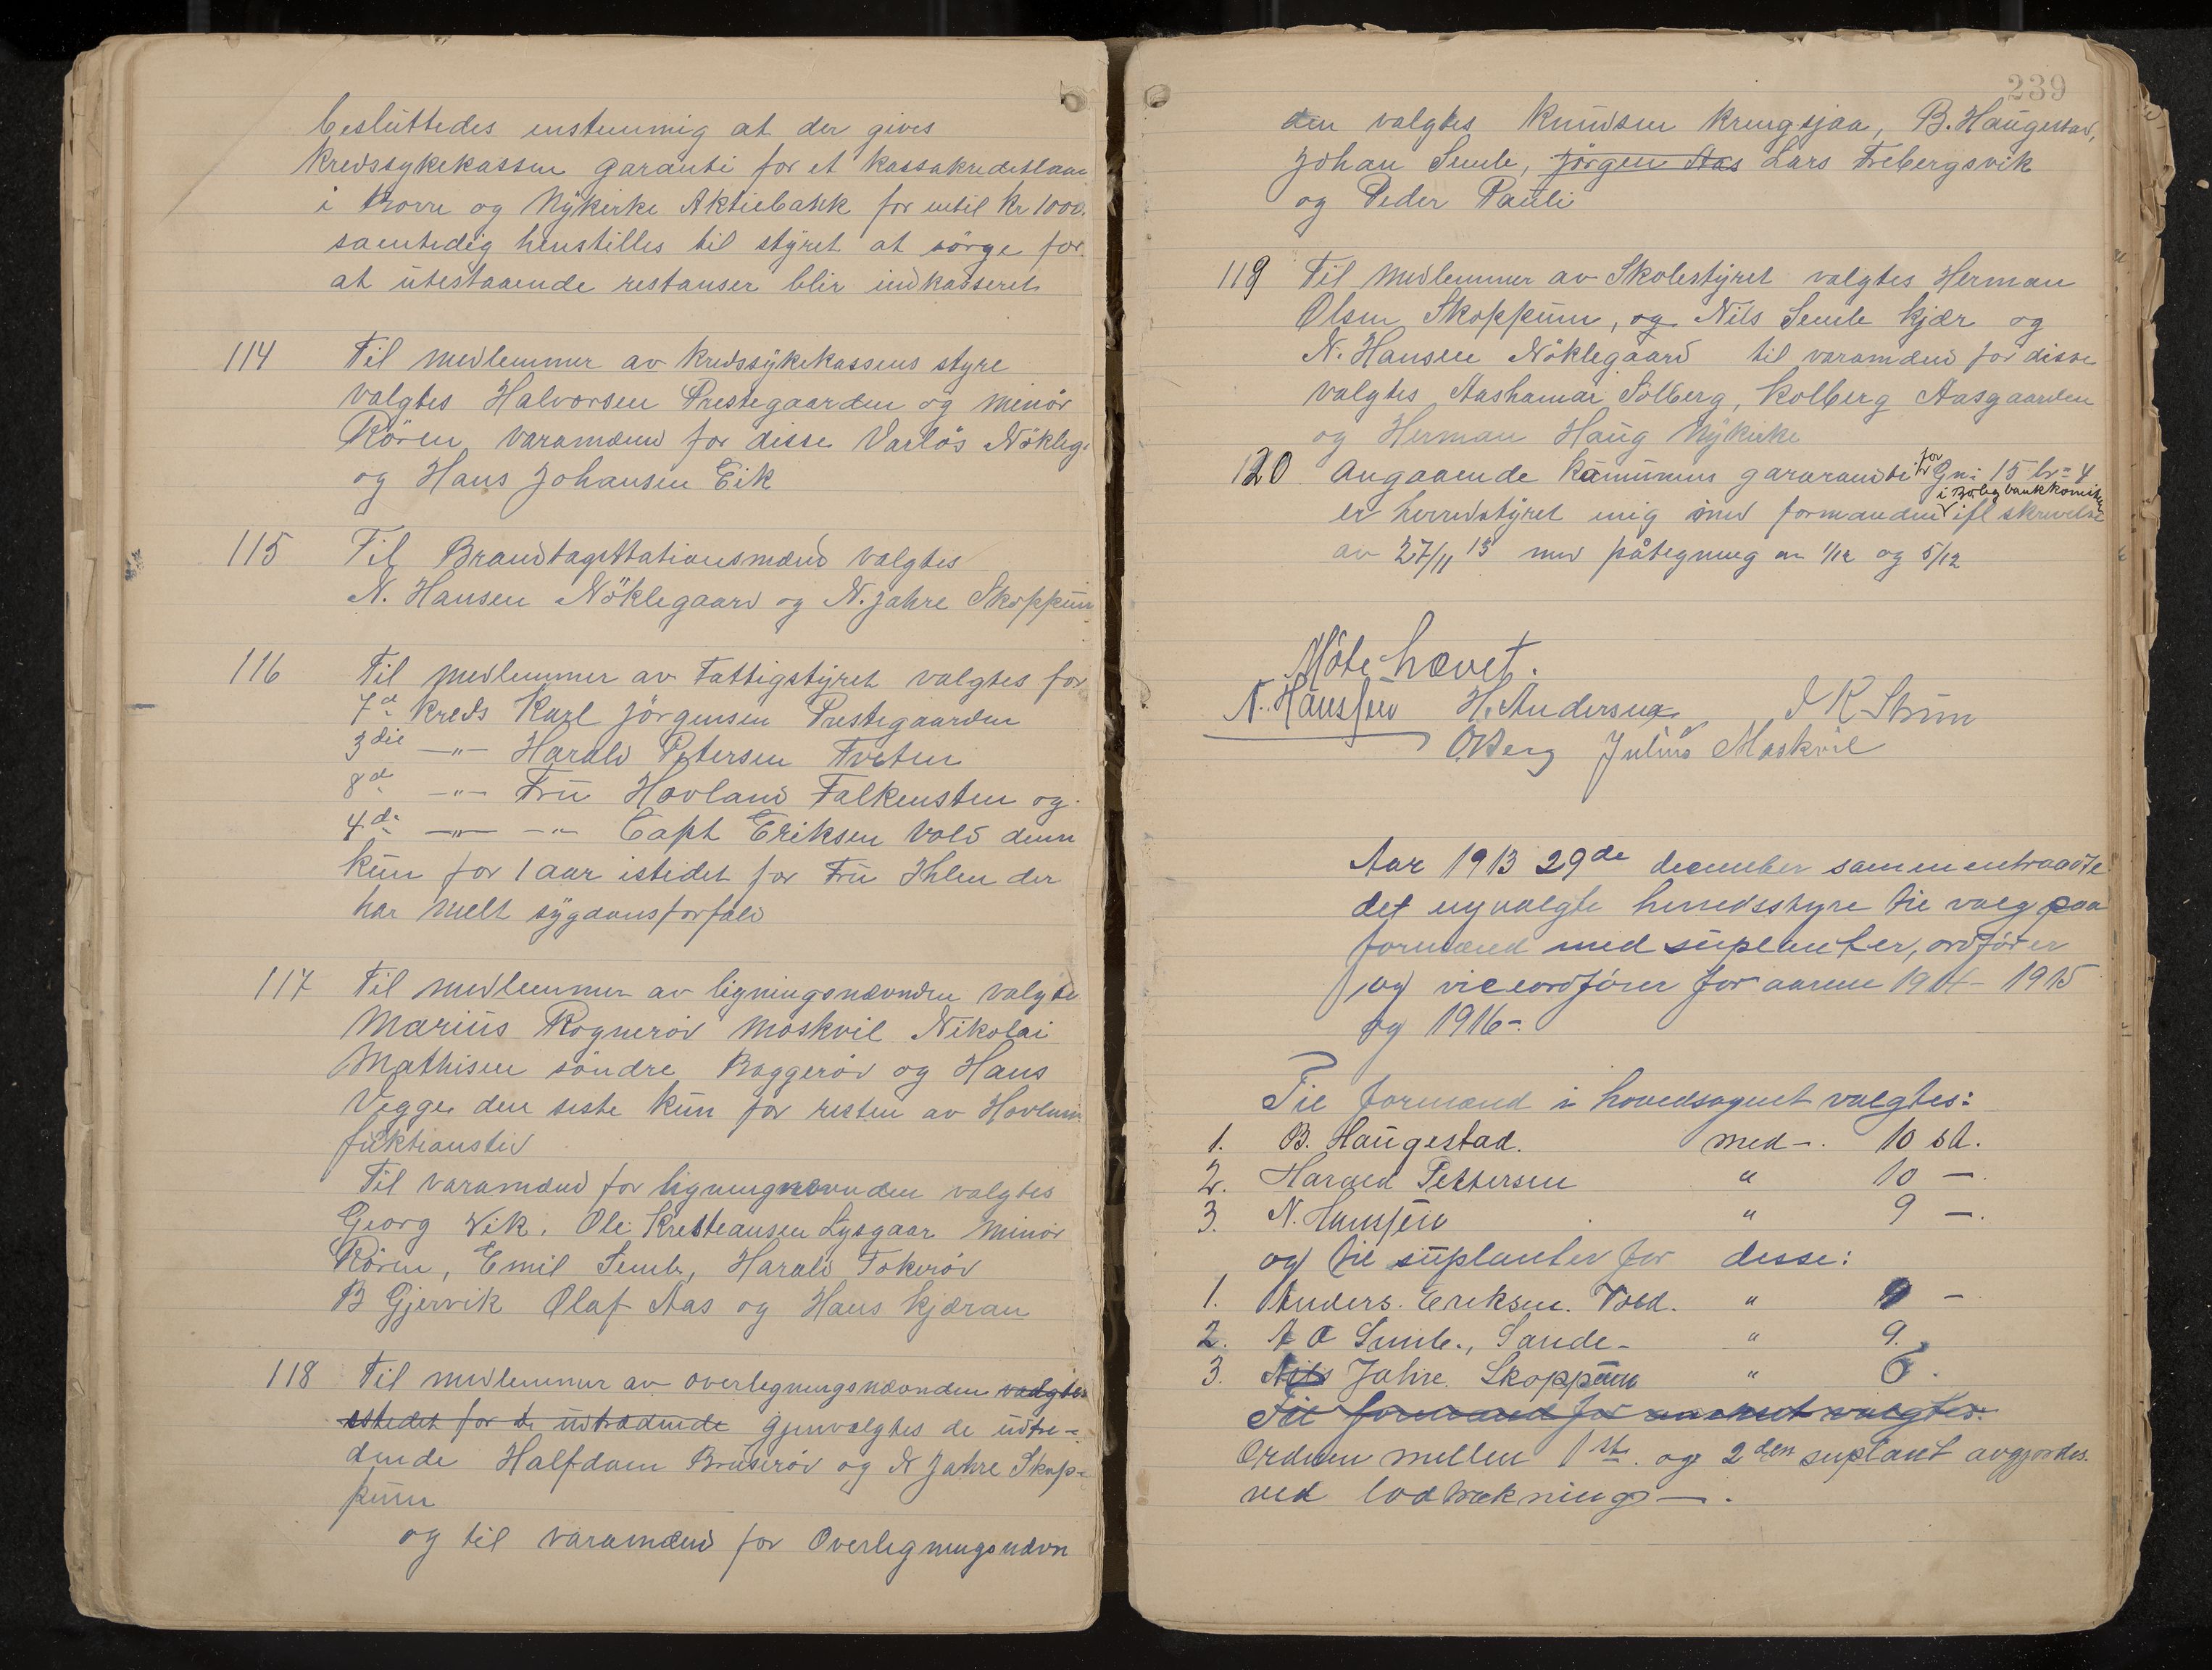 besluttedes enstemmig at der gives
Kredssykekassen garanti for et kassakreditlaan
i Borre og Nykirke Aktiebank for indtil Kr 1000.
samtidig henstilles til styret at sörge for
at utestaaende restanser blir indkasseret
114 Til medlemmer av Kredssykekassens styre
valgtes Halvorsen Prestegaarden og Minör
Rören, varamænd for disse Varlös Nökleg.
og Hans Johansen Eik
115 Til Brandtagsttationsmænd valgtes
N. Hansen Nöklegaard og N. Jahre Skoppum
116 Til medlemmer av Fattigstyret valgtes for
7d kreds Karl Jörgensen Prestegaarden
3die -"- Harald Petersen Tveten
8d -"- Fru Hovland Falkensten og
4de -"- -"- Capt Eriksen Vold denn
kun for 1 aar istedet for Fru Ihlen der
har melt sygdomsforfald
117 Til medlemmer av ligningsnævnden valgte
Marius Rognerød Moskvil Nikolai
Mathisen söndre Baggeröd og Hans
Vegger den siste kun for resten av
fuktionstid
Til varamænd for ligningnævnden valgtes
Georg Vik. Ole Kristiansen Lysgaar Minör
Rören, Emil Semb, Harald Tokeröd
B Gjervik Olaf Aas og Hans Kjæran
118 Til medlemmer av overligningsnævnden valgtes
istedet for de udtrædende gjenvalgtes de udtræ-
dende Halfdan Bruseröd og N Jahre Skop-
pum
og til varamænd for Overligningsnævn
239
den valgtes Knudsen Krengsjaa, B. Haugestad,
Johan Semb, Jörgen Aas Lars Frebergsvik
og Peder Pauli
119 Til medlemmer av Skolestyret valgtes Herman
Olsen Skoppum, og Nils Semb Kjær og
N. Hansen Nöklegaard til varamænd for disse
valgtes Aashamar Solberg, Kolberg Aasgaarden
og Herman Haug Nykirke
120 Angaaende Kamunens gararandti for Gn: 15 br: 4
i Boligbankkomiteen
er herredstyret enig med formanden ifl skrivelse
av 27/11 13 med påtegning av 1/12 og 5/12
Möte hævet.
N. Hanssen H. Andersen
O. Berg Julius Moskvil
Aar 1913 29de december sammentraadte
det nyvalgte herredsstyre til valg paa
formænd med suplanter, ordförer
og viceordförer for aarene 1914 - 1915
og 1916-.
Til formænd i hovedsognet valgtes:
1. B. Haugestad. med -. 10 st.
2. Harald Pettersen " 10 -.
3. N. Hanssen " 9 -.
og til suplanter for desse:
1. Anders. Eriksen. Vold. " 9 -
2. A O Semb., Sande- " 9.
3. Nils Jahre. Skoppum " 6.
Til formænd for annexet valgtes.
Ordnen mellem 1ste. og 2den suplant avgjordes.
ved lodtrækning -.